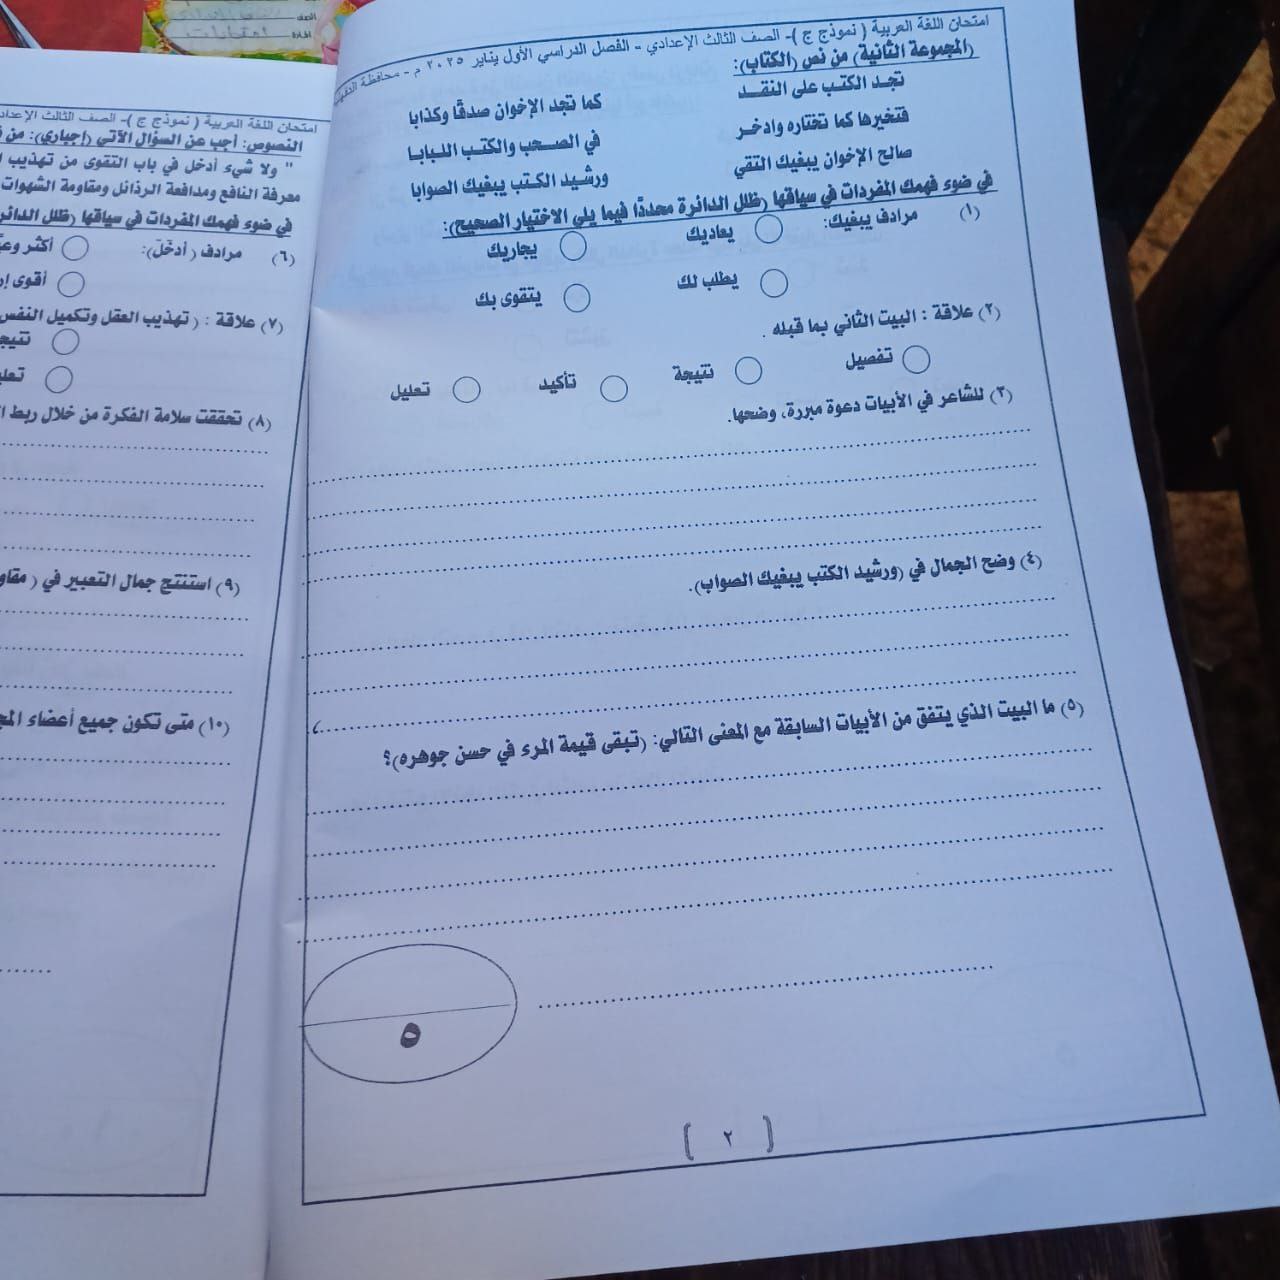 الصف
المادة
امتحان اللغة العربية ( نموذج ج )- الصف الثالث الإعدادي - الفصل الدراسي الأول يناير ٢٠٢٥ م - محافظة
(المجموعة الثانية) من نص (الكتاب):
تجد الكتب على النقد كما تجد الإخوان صدقًا وكذابا
فتخيرها كما تختاره وادخر في الصحب والكتب اللبابا
صالح الإخوان يبغيك التقي ورشيد الكتب يبغيك الصوابا
في ضوء فهمك المفردات في سياقها (ظلل الدائرة محددًا فيما يلي الاختيار الصحيح):
(١) مرادف يبغيك: يعاديك يجاريك
يطلب لك يتقوى بك
(٢) علاقة : البيت الثاني بما قبله .
تفصيل نتيجة تأكيد تعليل
(٣) للشاعر في الأبيات دعوة مبررة، وضحها.
(٤) وضح الجمال في (ورشيد الكتب يبغيك الصواب).
(٥) ما البيت الذي يتفق من الأبيات السابقة مع المعنى التالي: (تبقى قيمة المرء في حسن جوهره)؟
٥
( ٢ )
امتحان اللغة العربية ( نموذج ج )- الصف الثالث
النصوص: أجب عن السؤال الآتي (إجباري): من
" ولا شيء أدخل في باب التقوى من تهذيب
معرفة النافع ومدافعة الرذائل ومقاومة الشهوات
في ضوء فهمك المفردات في سياقها (ظلل
(٦) مرادف ( أدخل): أكثر
أقوى
(٧) علاقة : ( تهذيب العقل وتكميل النفس
(٨) تحققت سلامة الفكرة من خلال ربط
(٩) استنتج جمال التعبير في (
(١٠) متى تكون جميع أعضاء